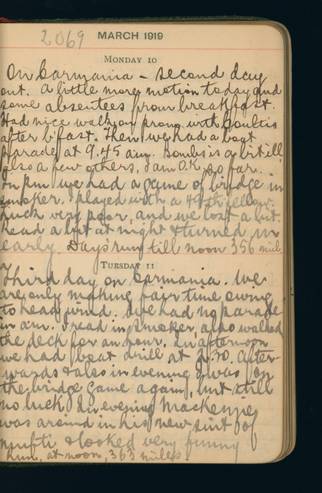 2069
MARCH 1919
MONDAY 10
On Carmania - second day
out. A little more motion today and
some absentees from breakfast.
Had nice walk on prom. with Soulis
after b'fast. Then we had a boat
parade at 9.45 a.m. Soulis is a bit ill
also a few others, I am O.K. so far.
In p.m. we had a game of bridge in
smoker. I played with a 49th fellow.
Luck very poor, and we lost a bit.
Read a bit at night & turned in
early. Day's run till noon 356 mil
TUESDAY 11
Third day on Carmania. We
are only making fair time owing
to head wind. We had no parade
in a.m. I read in smoker, also walked
the deck for an hour. In afternoon
we had boat drill at 2.30. After-
wards & also in evening I was on
the bridge game again, but still
no luck. In evening Mackenzie
was around in his new suit of
mufti & looked very funny
Run, at noon, 363 miles